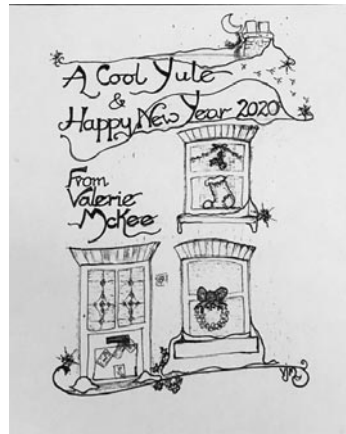 A Cool Yule
&
Happy New Year 2020
From
Valerie
McKee